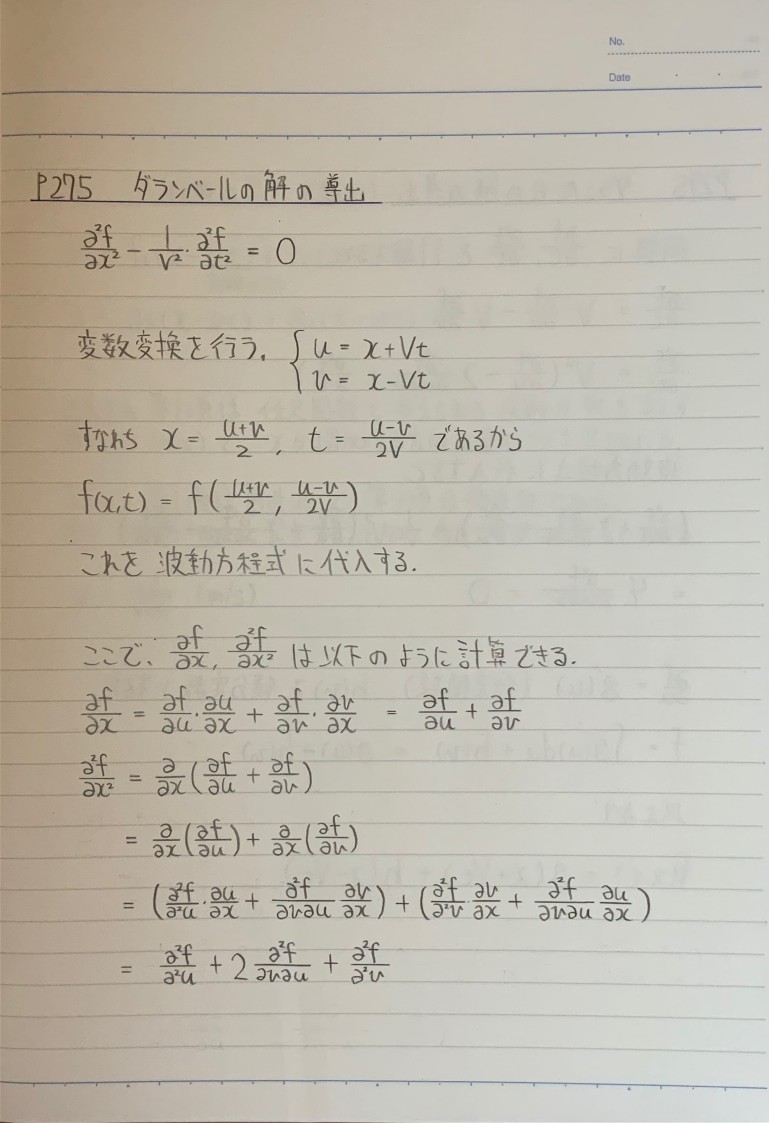 No.
Date
P275 ダランベールの解の導出
∂²f/∂x² − 1/V² · ∂²f/∂t² = 0
変数変換を行う。 { u = x+Vt
v = x−Vt
すなわち x = (u+v)/2, t = (u−v)/2V であるから
f(x,t) = f((u+v)/2, (u−v)/2V)
これを波動方程式に代入する.
ここで、∂f/∂x, ∂²f/∂x² は以下のように計算できる.
∂f/∂x = ∂f/∂u · ∂u/∂x + ∂f/∂v · ∂v/∂x = ∂f/∂u + ∂f/∂v
∂²f/∂x² = ∂/∂x (∂f/∂u + ∂f/∂v)
= ∂/∂x (∂f/∂u) + ∂/∂x (∂f/∂v)
= (∂²f/∂²u · ∂u/∂x + ∂²f/∂v∂u ∂v/∂x) + (∂²f/∂²v · ∂v/∂x + ∂²f/∂v∂u ∂u/∂x)
= ∂²f/∂²u + 2 ∂²f/∂v∂u + ∂²f/∂²v